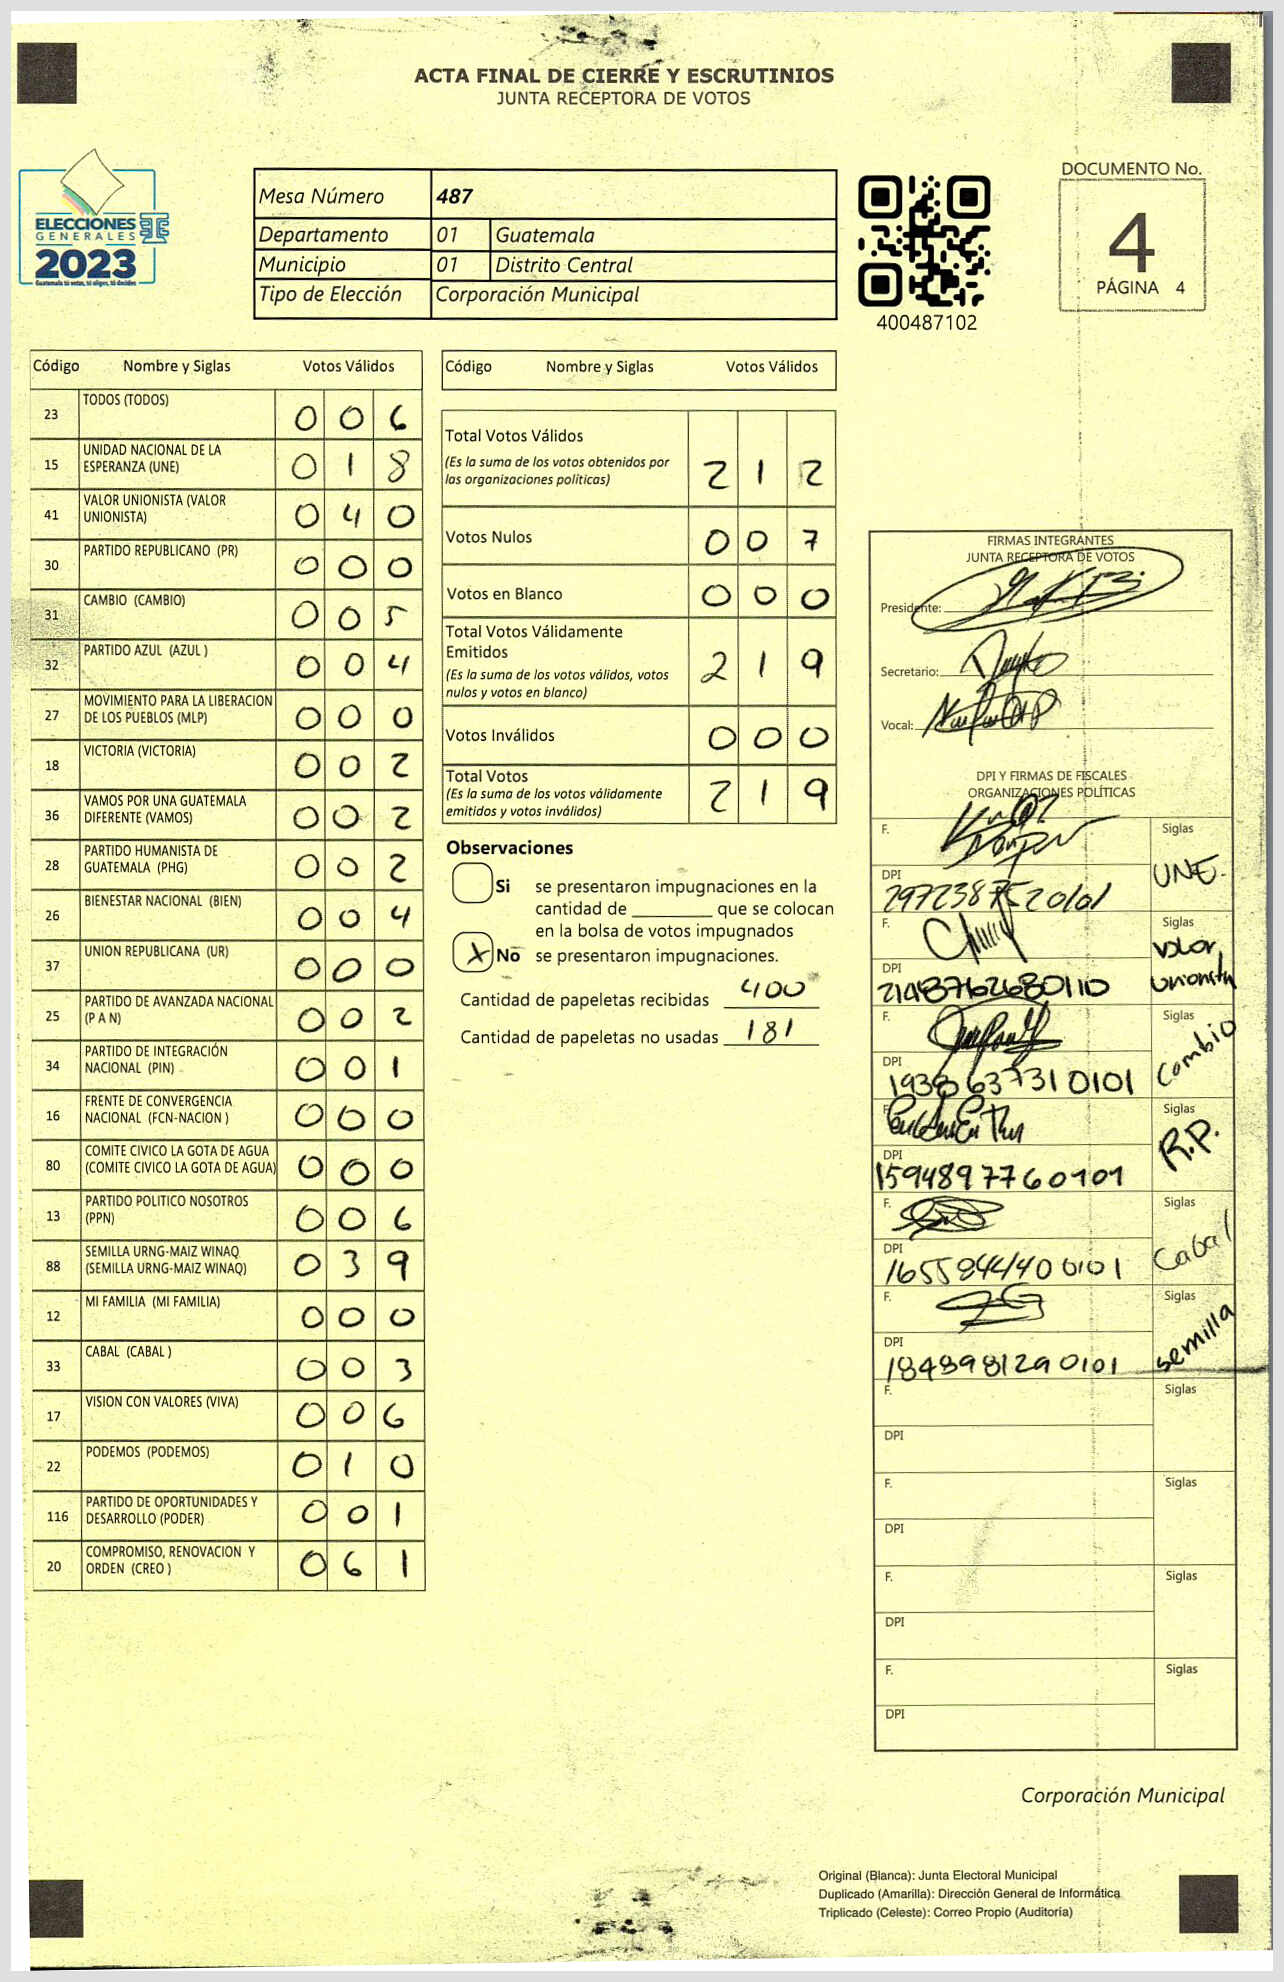 ACTA FINAL DE CIERRE Y ESCRUTINIOS
JUNTA RECEPTORA DE VOTOS
ELECCIONES
GENERALES
2023
Guatemala tú votas, tú eliges, tú decides
Mesa Número 487
Departamento 01 Guatemala
Municipio 01 Distrito Central
Tipo de Elección Corporación Municipal
400487102
DOCUMENTO No.
4
PÁGINA 4
Código Nombre y Siglas Votos Válidos
23 TODOS (TODOS) 0 0 6
15 UNIDAD NACIONAL DE LA
ESPERANZA (UNE) 0 1 8
41 VALOR UNIONISTA (VALOR
UNIONISTA) 0 4 0
30 PARTIDO REPUBLICANO (PR) 0 0 0
31 CAMBIO (CAMBIO) 0 0 5
32 PARTIDO AZUL (AZUL ) 0 0 4
27 MOVIMIENTO PARA LA LIBERACION
DE LOS PUEBLOS (MLP) 0 0 0
18 VICTORIA (VICTORIA) 0 0 2
36 VAMOS POR UNA GUATEMALA
DIFERENTE (VAMOS) 0 0 2
28 PARTIDO HUMANISTA DE
GUATEMALA (PHG) 0 0 2
26 BIENESTAR NACIONAL (BIEN) 0 0 4
37 UNION REPUBLICANA (UR) 0 0 0
25 PARTIDO DE AVANZADA NACIONAL
(P A N) 0 0 2
34 PARTIDO DE INTEGRACIÓN
NACIONAL (PIN) 0 0 1
16 FRENTE DE CONVERGENCIA
NACIONAL (FCN-NACION ) 0 0 0
80 COMITE CIVICO LA GOTA DE AGUA
(COMITE CIVICO LA GOTA DE AGUA) 0 0 0
13 PARTIDO POLITICO NOSOTROS
(PPN) 0 0 6
88 SEMILLA URNG-MAIZ WINAQ
(SEMILLA URNG-MAIZ WINAQ) 0 3 9
12 MI FAMILIA (MI FAMILIA) 0 0 0
33 CABAL (CABAL ) 0 0 3
17 VISION CON VALORES (VIVA) 0 0 6
22 PODEMOS (PODEMOS) 0 1 0
116 PARTIDO DE OPORTUNIDADES Y
DESARROLLO (PODER) 0 0 1
20 COMPROMISO, RENOVACION Y
ORDEN (CREO ) 0 6 1
Código Nombre y Siglas Votos Válidos
Total Votos Válidos
(Es la suma de los votos obtenidos por
las organizaciones políticas) 2 1 2
Votos Nulos 0 0 7
Votos en Blanco 0 0 0
Total Votos Válidamente
Emitidos
(Es la suma de los votos válidos, votos
nulos y votos en blanco) 2 1 9
Votos Inválidos 0 0 0
Total Votos
(Es la suma de los votos válidamente
emitidos y votos inválidos) 2 1 9
Observaciones
Si se presentaron impugnaciones en la
cantidad de ________ que se colocan
en la bolsa de votos impugnados
X No se presentaron impugnaciones.
Cantidad de papeletas recibidas 400
Cantidad de papeletas no usadas 181
FIRMAS INTEGRANTES
JUNTA RECEPTORA DE VOTOS
Presidente:
Secretario:
Vocal:
DPI Y FIRMAS DE FISCALES
ORGANIZACIONES POLÍTICAS
F. Siglas
UNE.
DPI
2972387520101
F. Siglas
Valor
Unionista
DPI
2148762680110
F. Siglas
Cambio
DPI
1938637310101
F. Siglas
R.P.
DPI
1594897760101
F. Siglas
Cabal
DPI
F. Siglas
semilla
DPI
1848981290101
F. Siglas
DPI
F. Siglas
DPI
F. Siglas
DPI
F. Siglas
DPI
Corporación Municipal
Original (Blanca): Junta Electoral Municipal
Duplicado (Amarilla): Dirección General de Informática
Triplicado (Celeste): Correo Propio (Auditoría)